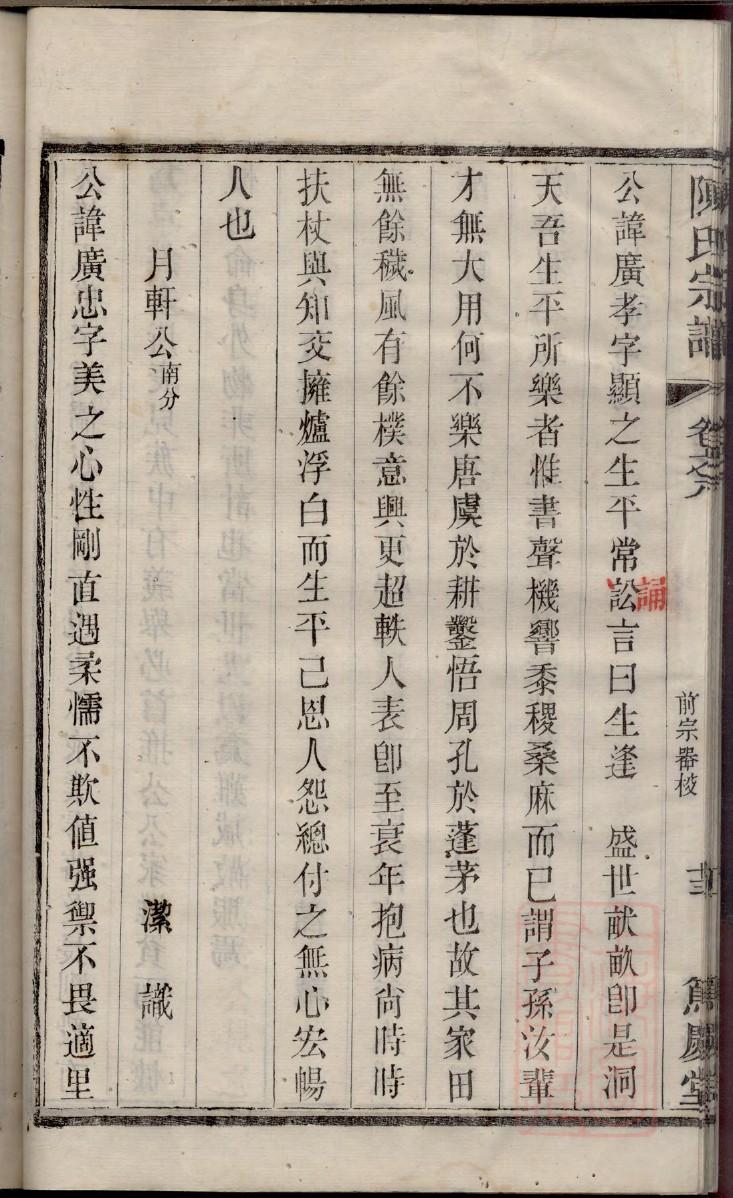 陳氏宗譜
卷之六
前宗器校
篤慶堂
公諱廣孝字顯之生平常訟言曰生逢　盛世畎畝卽是洞
誦
天吾生平所樂者惟書聲機響黍稷桑麻而已謂子孫汝輩
才無大用何不樂唐虞於耕鑿悟周孔於蓬茅也故其家田
無餘穢風有餘樸意興更超軼人表卽至衰年抱病尙時時
扶杖與知交擁爐浮白而生平己恩人怨總付之無心宏暢
人也
月軒公南分　潔識
公諱廣忠字美之心性剛直遇柔懦不欺値强禦不畏適里